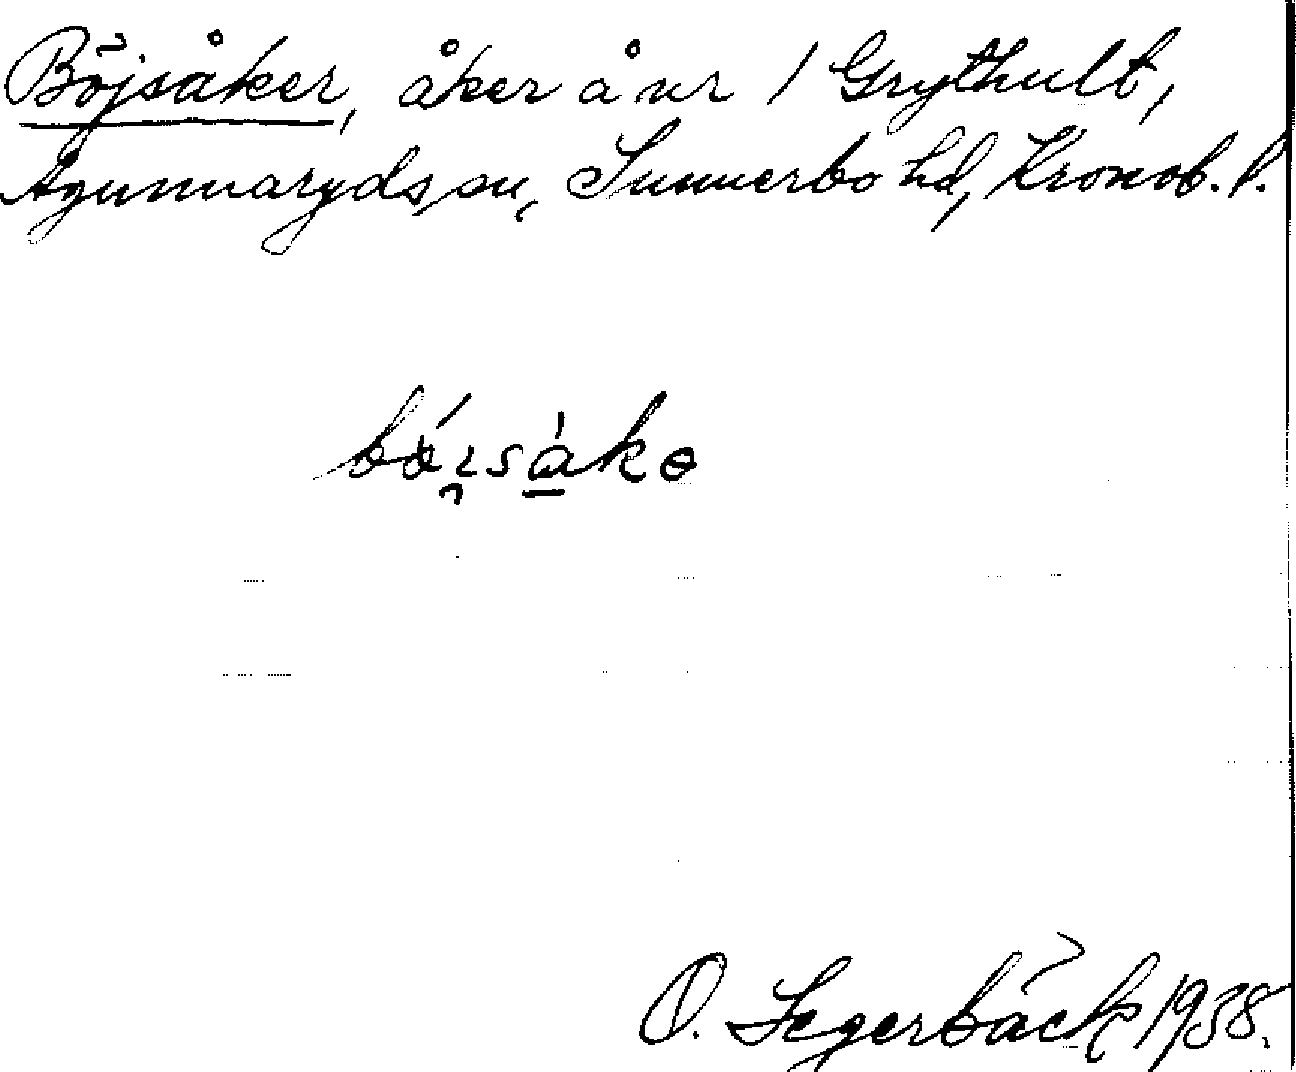 Böjsåker, åker å nr 1 Grythult,
Agunnaryds sn, Sunnerbo hd, Kronob. l.
O. Segerbäck 1938.